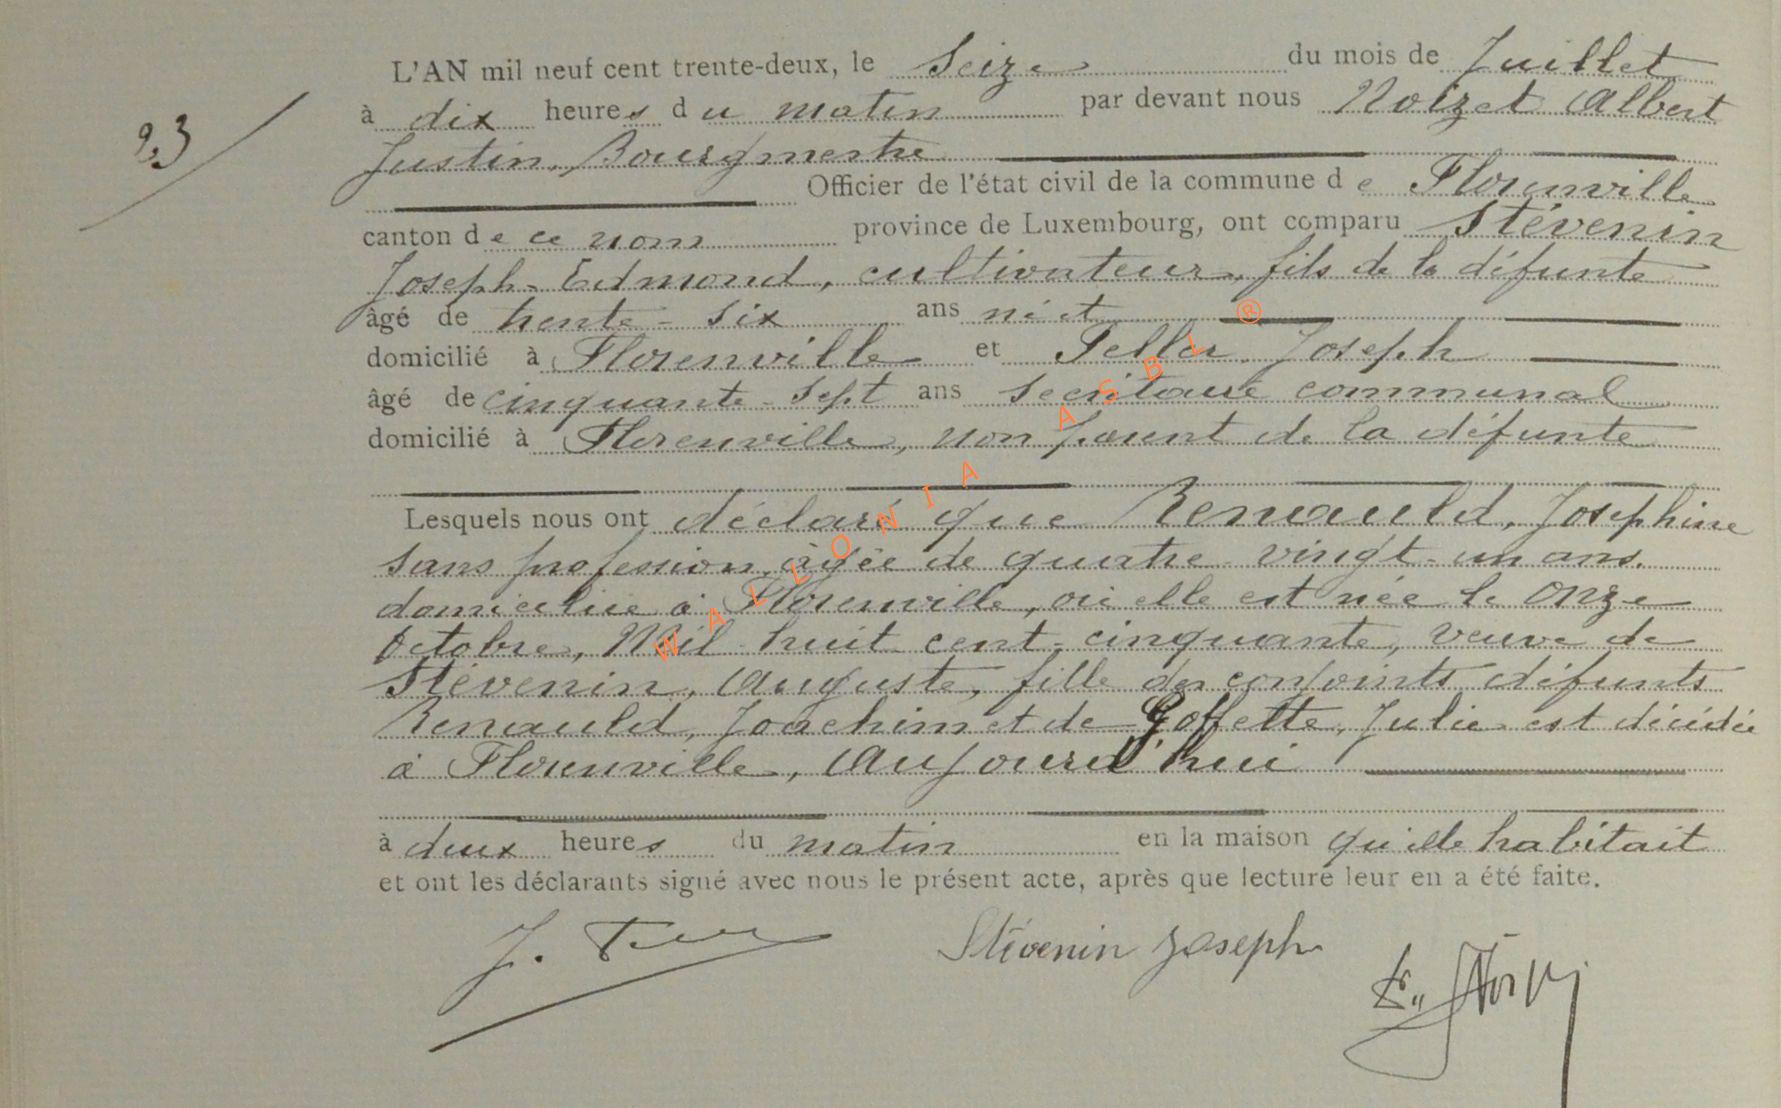 L'AN mil neuf cent trente-deux, le Seize du mois de Juillet
23
à dix heures du matin par devant nous Noizet Albert
Justin, Bourgmestre
Officier de l'état civil de la commune de Florenville
canton de ce nom province de Luxembourg, ont comparu Stévenin
Joseph-Edmond, cultivateur, fils de la défunte
âgé de trente-six ans né et
domicilié à Florenville et Peller Joseph
âgé de cinquante-sept ans secrétaire communal
domicilié à Florenville, non parent de la défunte
Lesquels nous ont déclaré que Renauld, Joséphine
sans profession, âgée de quatre-vingt-un ans,
domiciliée à Florenville, où elle est née le onze
octobre, Mil-huit-cent-cinquante, veuve de
Stévenin, Auguste, fille des conjoints défunts
Renauld, Joachim et de Goffette, Julie est décédée
à Florenville, Aujourd'hui
à deux heures du matin en la maison qu'elle habitait
et ont les déclarants signé avec nous le présent acte, après que lecture leur en a été faite.
J. Stévenin Joseph
WALLONIA ASBL ®